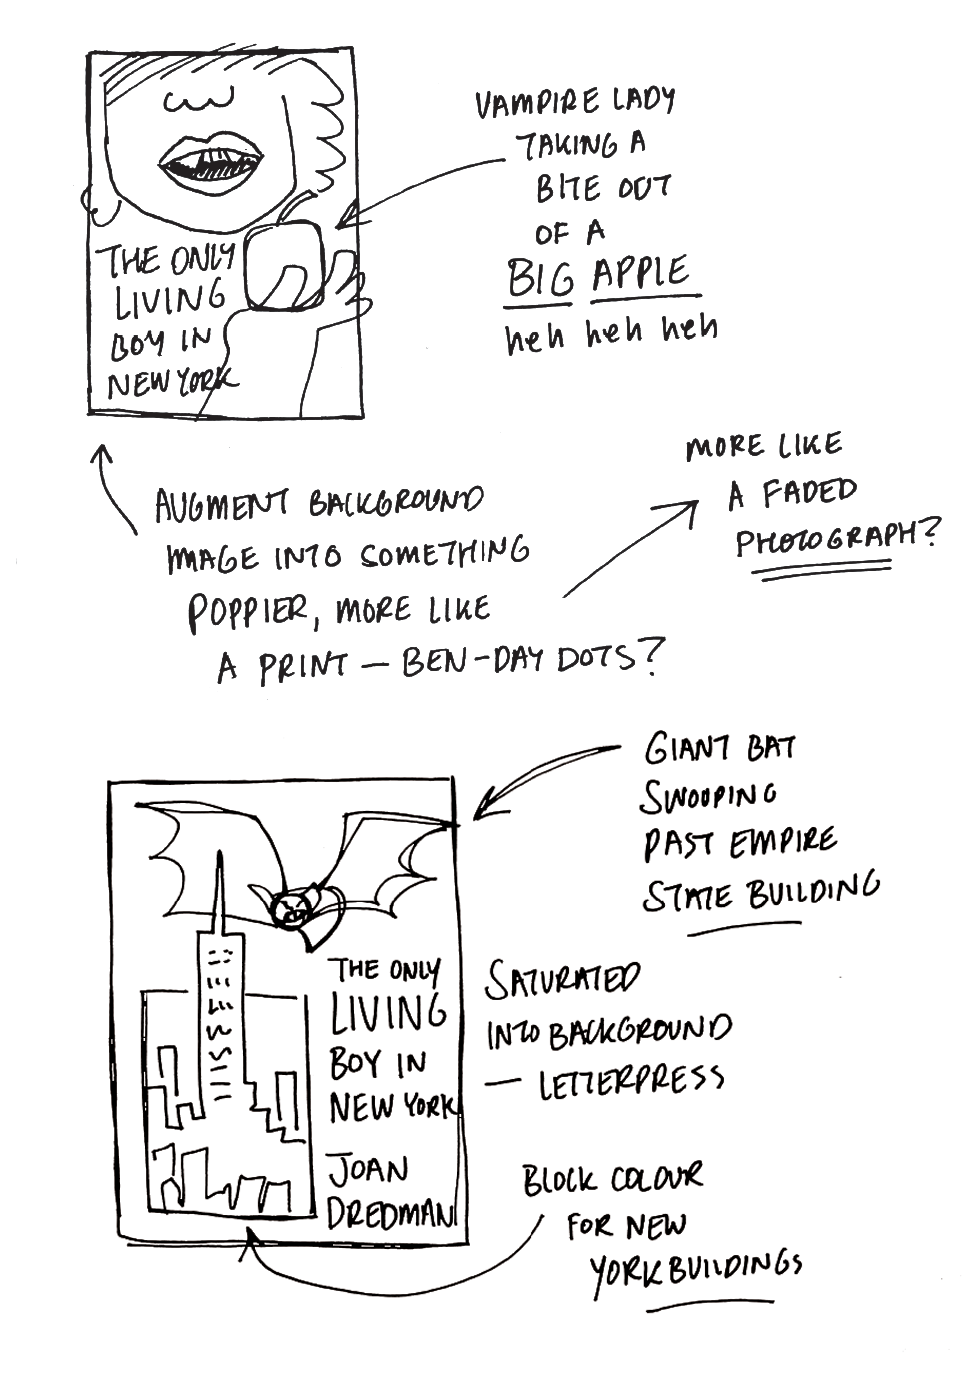 VAMPIRE LADY
TAKING A
BITE OUT
OF A
BIG APPLE
heh heh heh
THE ONLY
LIVING
BOY IN
NEW YORK
MORE LIKE
A FADED
PHOTOGRAPH?
AUGMENT BACKGROUND
IMAGE INTO SOMETHING
POPPIER, MORE LIKE
A PRINT — BEN-DAY DOTS?
GIANT BAT
SWOOPING
PAST EMPIRE
STATE BUILDING
THE ONLY
LIVING
BOY IN
NEW YORK
JOAN
DREDMAN
SATURATED
INTO BACKGROUND
— LETTERPRESS
BLOCK COLOUR
FOR NEW
YORK BUILDINGS